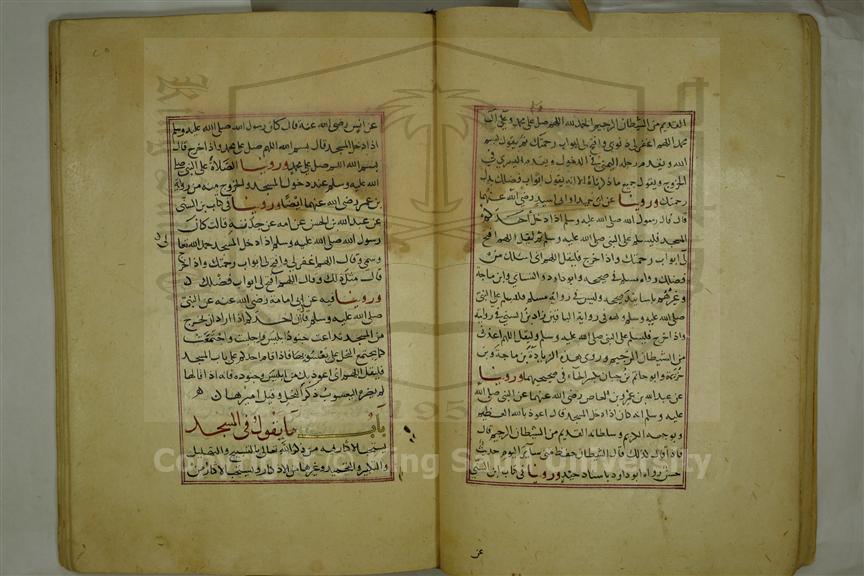 القديم من الشيطان الرجيم الحمد لله اللهم صل على محمد وعلى آل
محمد اللهم اغفر لي ذنوبي وافتح لي ابواب رحمتك ثم يقول بسم
الله ويقدم رجله اليمنى في الدخول ويقدم اليسرى في
الخروج ويقول جميع ما ذكرناه الا انه يقول ابواب فضلك بدل
رحمتك وروينا عن ابي حميد او ابي اسيد رضي الله عنهما
قال قال رسول الله صلى الله عليه وسلم اذا دخل احدكم
المسجد فليسلم على النبي صلى الله عليه وسلم ثم ليقل اللهم افتح
لي ابواب رحمتك واذا خرج فليقل اللهم اني اسئلك من
فضلك رواه مسلم في صحيحه وابو داود والنسائي وابن ماجة
وغيرهم باسانيد صحيحة وليس في رواية مسلم فليسلم على النبي
صلى الله عليه وسلم وهو في رواية الباقين زاد ابن السني في روايته
واذا خرج فليسلم على النبي صلى الله عليه وسلم وليقل اللهم اعذني
من الشيطان الرجيم وروى هذه الزيادة بن ماجة وبن
خزيمة وابو حاتم بن حبان بكسر الحاء في صحيحيهما وروينا
عن عبد الله بن عمرو بن العاص رضي الله عنهما عن النبي صلى الله
عليه وسلم انه كان اذا دخل المسجد قال اعوذ بالله العظيم
وبوجهه الكريم وسلطانه القديم من الشيطان الرجيم قال
فاذا قال ذلك قال الشيطان حفظ مني سائر اليوم حديث
حسن رواه ابو داود باسناد جيد وروينا في كتاب ابن السني
عن
عن انس رضي الله عنه قال كان رسول الله صلى الله عليه وسلم
اذا دخل المسجد قال بسم الله اللهم صل على محمد واذا خرج قال
بسم الله اللهم صل على محمد وروينا الصلاة على النبي صلى
الله عليه وسلم عند دخول المسجد والخروج منه من رواية
بن عمر رضي الله عنهما ايضا وروينا في كتاب بن السني
عن عبد الله بن الحسن عن امه عن جدته قالت كان
رسول الله صلى الله عليه وسلم اذا دخل المسجد حمد الله تعا
وسمى وقال اللهم اغفر لي وافتح لي ابواب رحمتك واذا خرج
قال مثل ذلك وقال اللهم افتح لي ابواب فضلك
وروينا فيه عن ابي امامة رضي الله عنه عن النبي
صلى الله عليه وسلم قال ان احدكم اذا اراد ان يخرج
من المسجد تداعت جنود ابليس واجلبت واجتمعت
كما يجتمع النحل على يعسوبها فاذا قام احدكم على باب المسجد
فليقل اللهم اني اعوذ بك من ابليس وجنوده فانه اذا قالها
لم يضره اليعسوب ذكر النحل وقيل اميرها
باب ما يقول في المسجد
يستحب الاكثار فيه من ذكر الله تعالى بالتسبيح والتهليل
والتكبير والتحميد وغيرها من الاذكار ويستحب الاكثار من
Copyright © King Saud University
1957